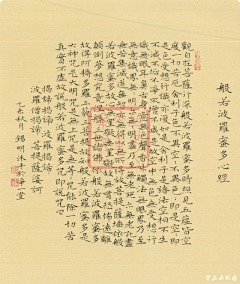 般若波羅蜜多心經
觀自在菩薩行深般若波羅蜜多時照見五蘊皆空
度一切苦厄舍利子色不異空空不異色色即是空空即
是色受想行識亦復如是舍利子是諸法空相不生
不滅不垢不淨不增不減是故空中無色無受想行識
無眼耳鼻舌身意無色聲香味觸法無眼界乃至
無意識界無無明亦無無明盡乃至無老死亦無老死盡
無苦集滅道無智亦無得以無所得故菩提薩埵依般
若波羅蜜多故心無罣礙無罣礙故無有恐怖遠離
顛倒夢想究竟涅槃三世諸佛依般若波羅蜜多
故得阿耨多羅三藐三菩提故知般若波羅蜜多是
大神咒是大明咒是無上咒是無等等咒能除一切苦
真實不虛故說般若波羅蜜多咒即說咒曰
揭諦揭諦 波羅揭諦
波羅僧揭諦 菩提薩婆訶
秋月 明沐手 堂